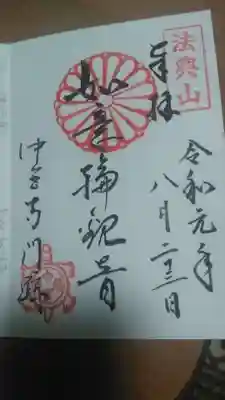 法興山
奉拝
令和元年
八月二十三日
如意輪観音
中宮寺門跡